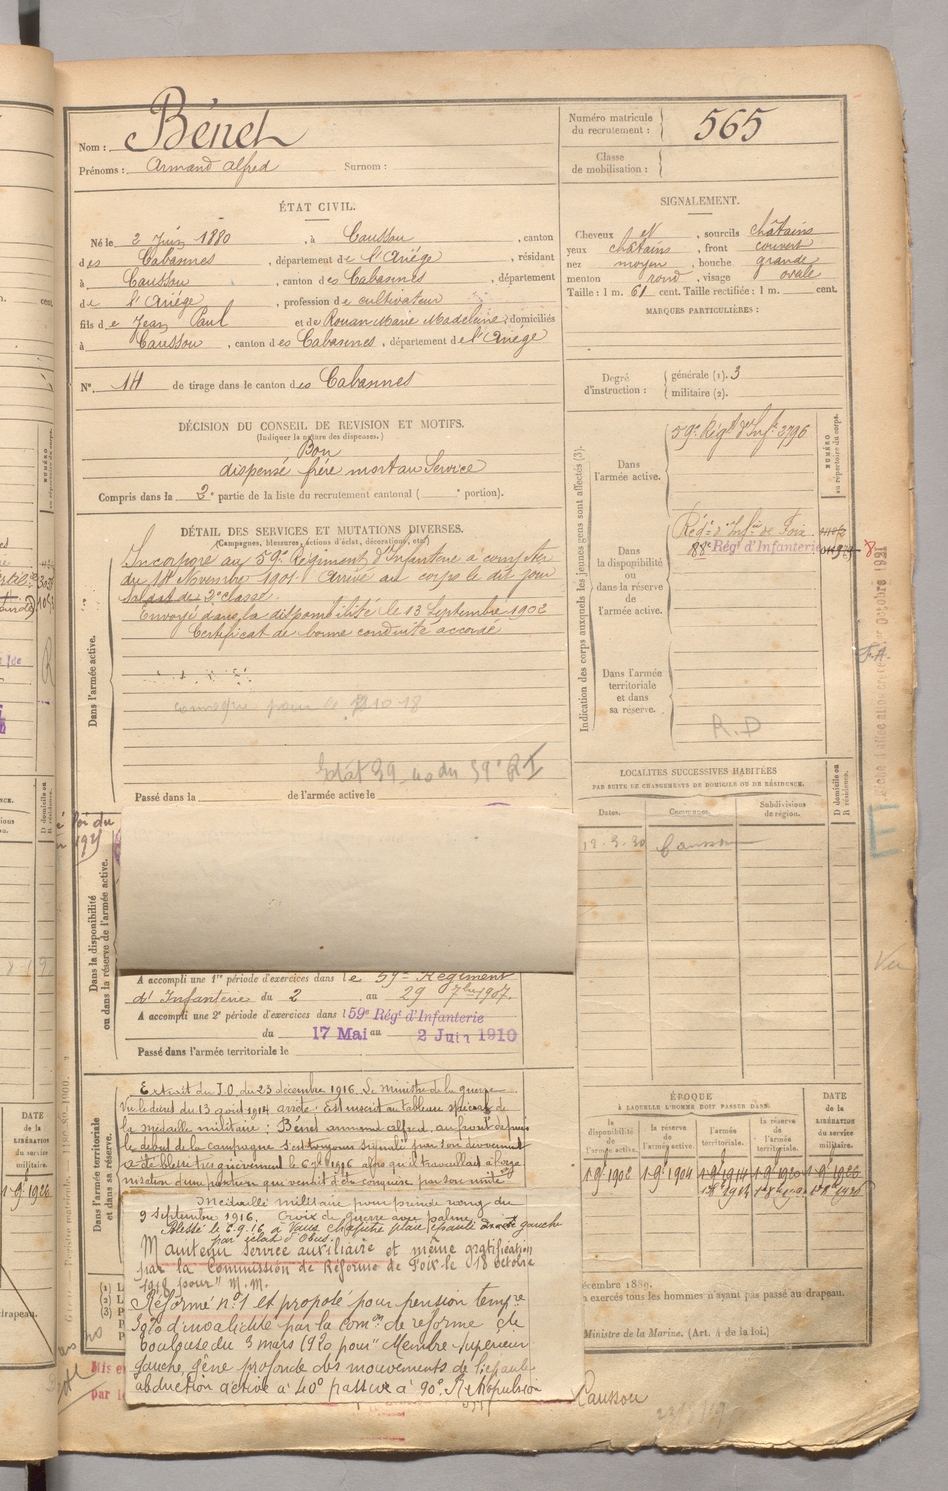 Nom : Bénet
Prénoms : Armand Alfred Surnom :
Numéro matricule du recrutement : 565
Classe de mobilisation :
ÉTAT CIVIL.
Né le 2 Juin 1880, à Caussou, canton
des Cabannes, département de l'Ariége, résidant
à Caussou, canton des Cabannes, département
de l'Ariége, profession de cultivateur
fils de Jean Paul et de Rouan Marie Madeleine, domiciliés
à Caussou, canton des Cabannes, département de l'Ariége
N° 14 de tirage dans le canton des Cabannes
SIGNALEMENT.
Cheveux N, sourcils châtains
yeux châtains, front couvert
nez moyen, bouche grande
menton rond, visage ovale
Taille : 1 m. 61 cent. Taille rectifiée : 1 m. cent.
MARQUES PARTICULIÈRES :
Degré d'instruction : générale (1). 3
militaire (2).
DÉCISION DU CONSEIL DE REVISION ET MOTIFS.
(Indiquer la nature des dispenses.)
Bon
dispensé frère mort au Service
Compris dans la 2e partie de la liste du recrutement cantonal ( e portion).
DÉTAIL DES SERVICES ET MUTATIONS DIVERSES.
(Campagnes, blessures, actions d'éclat, décorations, etc.)
Dans l'armée active.
Incorporé au 59e Régiment d'Infanterie à compter
du 14 Novembre 1901. Arrivé au corps le dit jour
Soldat de 2e classe.
Envoyé dans la disponibilité le 13 Septembre 1902
Certificat de bonne conduite accordé
R I
Passé dans la de l'armée active le
Indication des corps auxquels les jeunes gens sont affectés (3).
Dans l'armée active.
59e Régt d'Infie 3796
NUMÉRO au répertoire du corps.
Dans la disponibilité ou dans la réserve de l'armée active.
Régt d'Infie de Foix
88e Régt d'Infanterie
Dans l'armée territoriale et dans sa réserve.
R.D
F.A.
LOCALITÉS SUCCESSIVES HABITÉES
PAR SUITE DE CHANGEMENTS DE DOMICILE OU DE RÉSIDENCE.
Dates. Communes. Subdivisions de région. D domicile ou R résidence.
Caussou
Vu
Dans la disponibilité ou dans la réserve de l'armée active.
A accompli une 1re période d'exercices dans le 59e Régiment
d'Infanterie du 2 au 29 7bre 1907.
A accompli une 2e période d'exercices dans l 59e Régt d'Infanterie
du 17 Mai au 2 Juin 1910
Passé dans l'armée territoriale le
Dans l'armée territoriale et dans sa réserve.
Extrait du J.O. du 23 décembre 1916. Le ministre de la guerre
Vu le décret du 13 août 1914 arrête : Est inscrit au tableau spécial de
la médaille militaire : Bénet armand alfred, au front depuis
le début de la campagne s'est toujours signalé par son dévouement
a été blessé très grièvement le 6 7bre 1916 alors qu'il travaillait à l'orga
nisation d'une position que venait d'être conquise par son unité
Médaille militaire pour prendre rang du
9 septembre 1916. Croix de guerre avec palme
Blessé le 6.9.16 à Vaux Chapitre plaie épaule gauche
par éclat d'obus.
Maintenu service auxiliaire et même gratification
par la Commission de Réforme de Foix le 18 octobre
1918 pour " M.M.
Réformé n°1 et proposé pour pension tempre
30% d'invalidité par la Comon de réforme de
Toulouse du 3 mars 1920 pour " Membre supérieur
gauche, gêne profonde des mouvements de l'épaule
abduction active à 40° passive à 90°. Rétropulsion
ÉPOQUE
À LAQUELLE L'HOMME DOIT PASSER DANS
la disponibilité de l'armée active. la réserve de l'armée active. l'armée territoriale. la réserve de l'armée territoriale. DATE de la LIBÉRATION du service militaire.
1 9bre 1902 1 9bre 1904 1 9bre 1914 1 9bre 1920 1 9bre 1926
écembre 1889.
à exercés tous les hommes n'ayant pas passé au drapeau.
Ministre de la Marine. (Art. 4 de la loi.)
Caussou